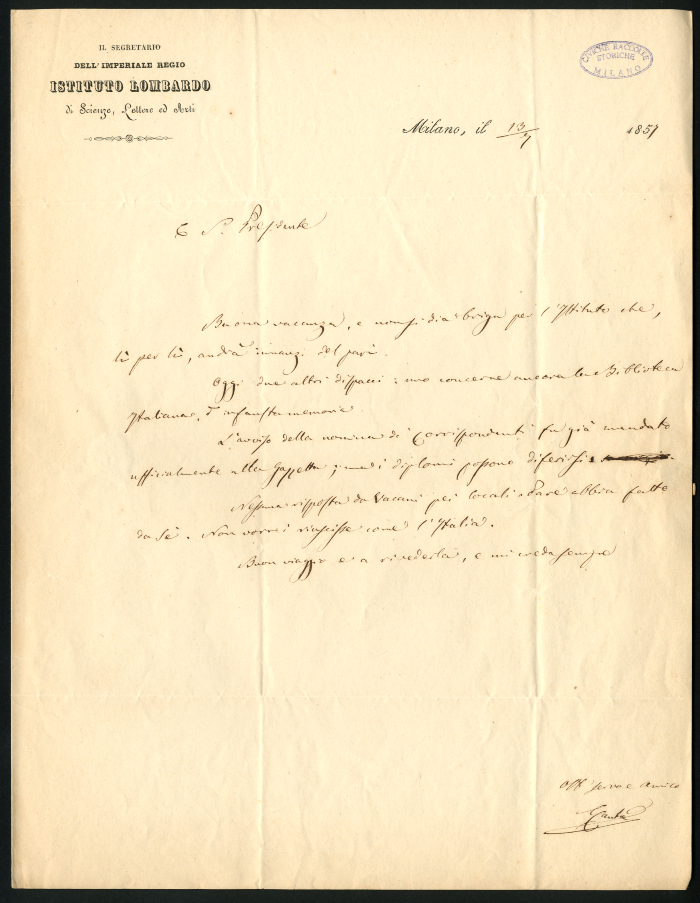 IL SEGRETARIO
DELL'IMPERIALE REGIO
ISTITUTO LOMBARDO
di Scienze, Lettere ed Arti
CIVICHE RACCOLTE
STORICHE
MILANO
Milano, il 13/7 1857
C Sr. Presidente
Buona vacanza, e non si dia briga per l'Istituto che,
lì per lì, andrà innanzi del pari.
Oggi due altri dispacci: uno concerne ancora la Biblioteca
Italiana, d'infausta memoria.
L'avviso della nomina di Corrispondenti fu già mandato
ufficialmente alla Gazzetta; ma i diplomi possono differirsi
Nessuna risposta da Vacani pei locali. Pare abbia fatto
da sè. Non vorrei riuscisse come l'Italia.
Buon viaggio e a rivederla, e mi creda sempre
obb servo e amico
Cantù